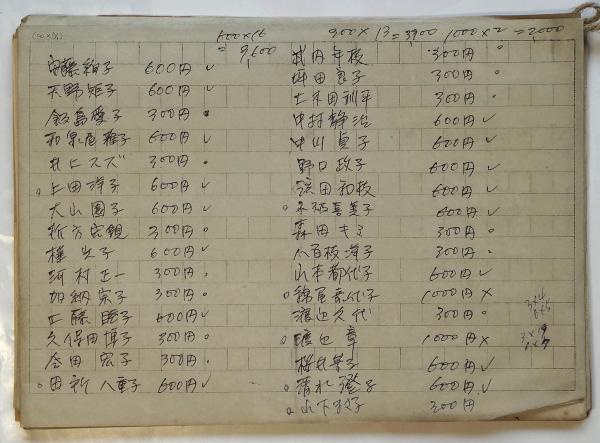 600×16
=9,600
300×13=3900
1000×2=2,000
安藤絢子 600円 ✓
天野矩子 600円 ✓
飯島愛子 300円 。
和泉尾雅子 600円 ✓
井上スズ 300円 。
。上田洋子 600円 ✓
大山園子 600円 ✓
300円 。
子 600円 ✓
河村正一 300円 。
加納宗子 300円 。
工藤 子 400円 ✓
久保田博子 300円 。
合田宏子 300円 。
。田新八重子 600円 ✓
武内年枝 300円 。
坪田良子 300円 。
土木田訓平 300円 。
中村静治 600円 ✓
中川貞子 600円 ✓
野口政子 600円 ✓
浜田和枝 600円 ✓
喜美子 600円 ✓
森田キミ 300円 。
八百板洋子 300円 。
山本都代子 600円 ✓
代子 1000円 ×
渡辺久代 300円 。
章 1000円 ×
桜井 子 600円 ✓
。清水澄子 600円 ✓
。山下 子 300円